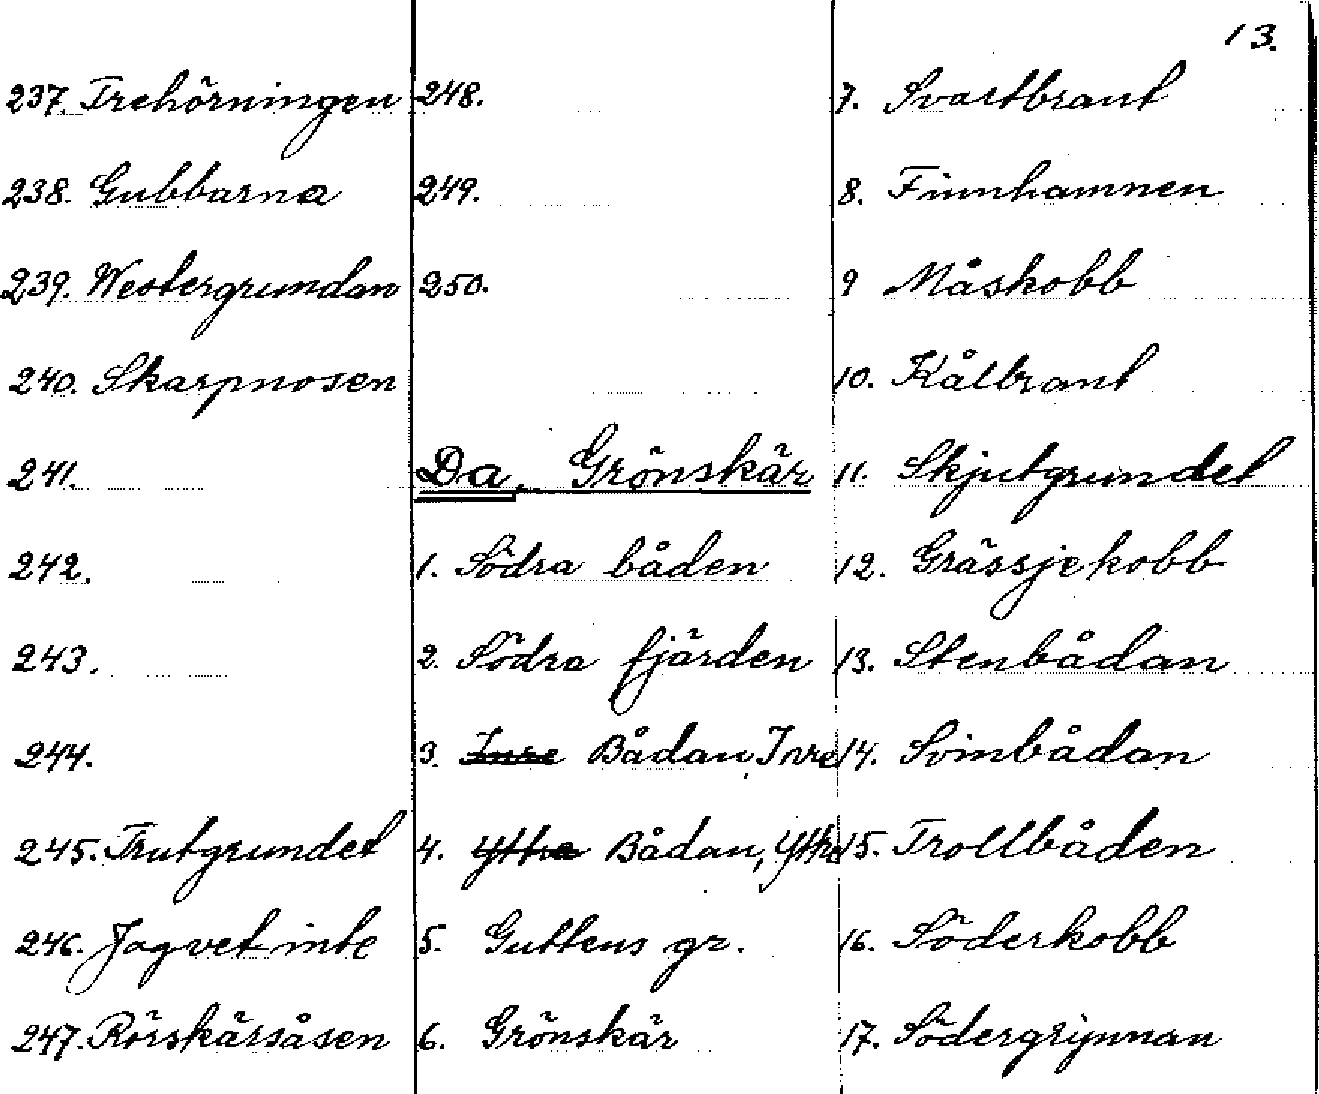 13.
237. Trehörningen
238. Gubbarna
239. Westergrundan
240. Skarpnosen
241.
242.
243.
244.
245. Trutgrundet
246. Jag vet inte
247. Rörskärsåsen
248.
249.
250.
Da. Grönskär
1. Södra båden
2. Södra fjärden
3. Inre Bådan, Inre
4. Yttre Bådan, Yttre
5. Guttens gr.
6. Grönskär
7. Svartbrant
8. Finnhamnen
9 Måskobb
10. Kålbrant
11. Skjutgrundet
12. Grässjekobb
13. Stenbådan
14. Svinbådan
15. Trollbåden
16. Söderkobb
17. Södergrynnan